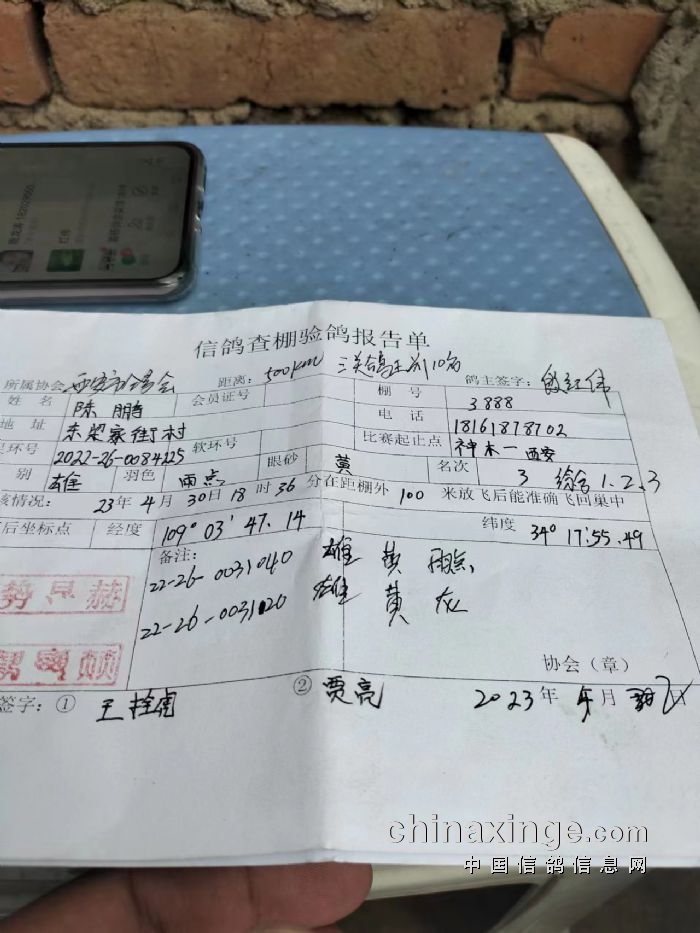 信鸽查棚验鸽报告单
所属协会 西安市信鸽协会 距离: 500KM 三关鸽王前10名 鸽主签字:
姓名 陈鹏 会员证号 棚号 3888
地址 东梁家街村 电话 18161878702
环号 2022-26-0084425 软环号 比赛起止点 神木一西安
别 雄 羽色 雨点 眼砂 黄 名次 3 综合 1.2.3
核情况: 23年4月30日18时36分在距棚外100米放飞后能准确飞回巢中
后坐标点 经度 109° 03' 47.14 纬度 34° 17:55.49
备注:
22-26-0031040 雄 黄 雨点
22-26-0031120 雄 黄 灰
协会（章）
签字: ① 王拴虎 ② 贾亮 2023年4月
chinaxinge.com
中国信鸽信息网